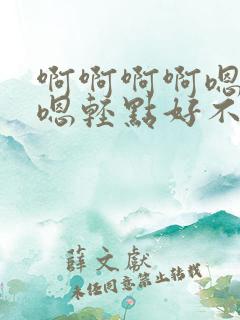 啊啊啊啊嗯
嗯轻點好不
薛文獻
未任同意禁止转载